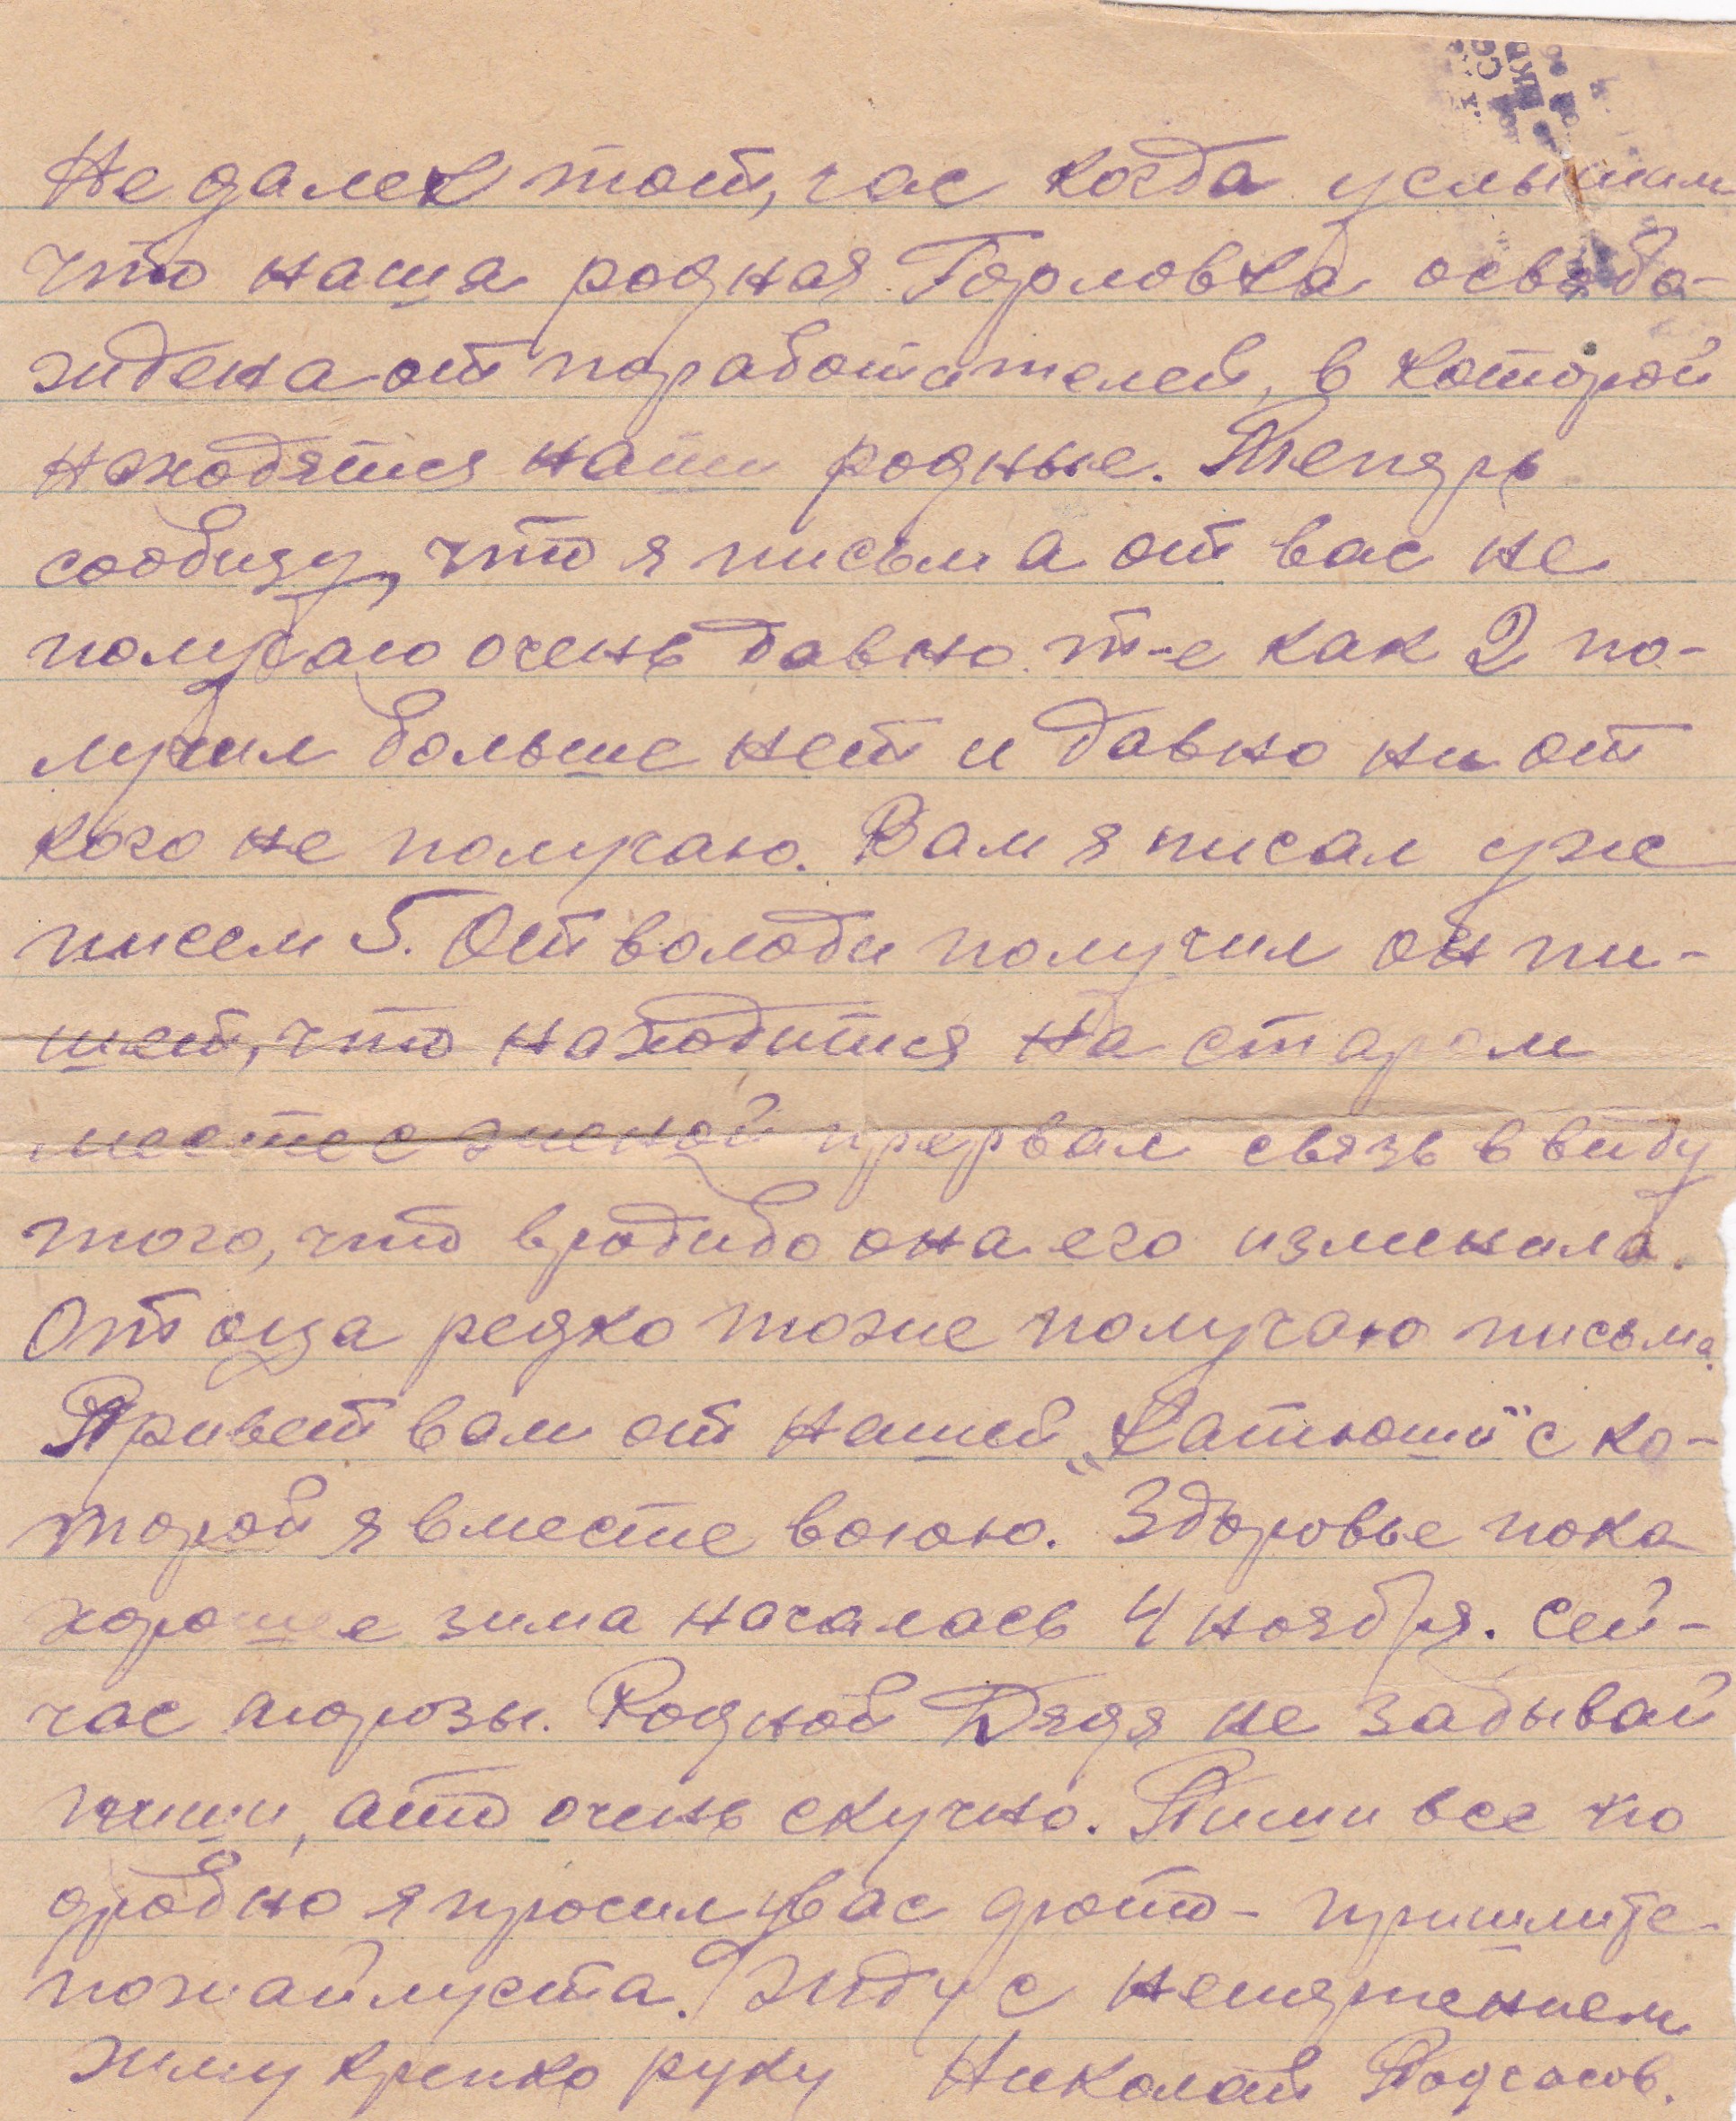 Не далек тот, час когда услышим
что наша родная Горловка освобо-
ждена от поработителей, в которой
находятся наши родные. Тепярь
сообщу, что я письма от вас не
получаю очень давно т-е как 2 по-
лучил больше нет и давно ни от
кого не получаю. Вам я писал уже
писем 5. От володи получил он пи-
шет, что находится на старом
месте с женой прервал связь в виду
того, что вродибо она его изменила.
От отца редко тоже получаю письма.
Привет вам от нашей „Катюши" с ко-
торой я вместе воюю. Здоровье пока
хорошее зима началась 4 ноября. Сей-
час морозы. Родной Дядя не забывай
пиши, а то очень скучно. Пиши все по
дробно я просил у вас фото - пришлите
пожайлуста. Жду с нетярпением
жму крепко руку Николай Подгасов.